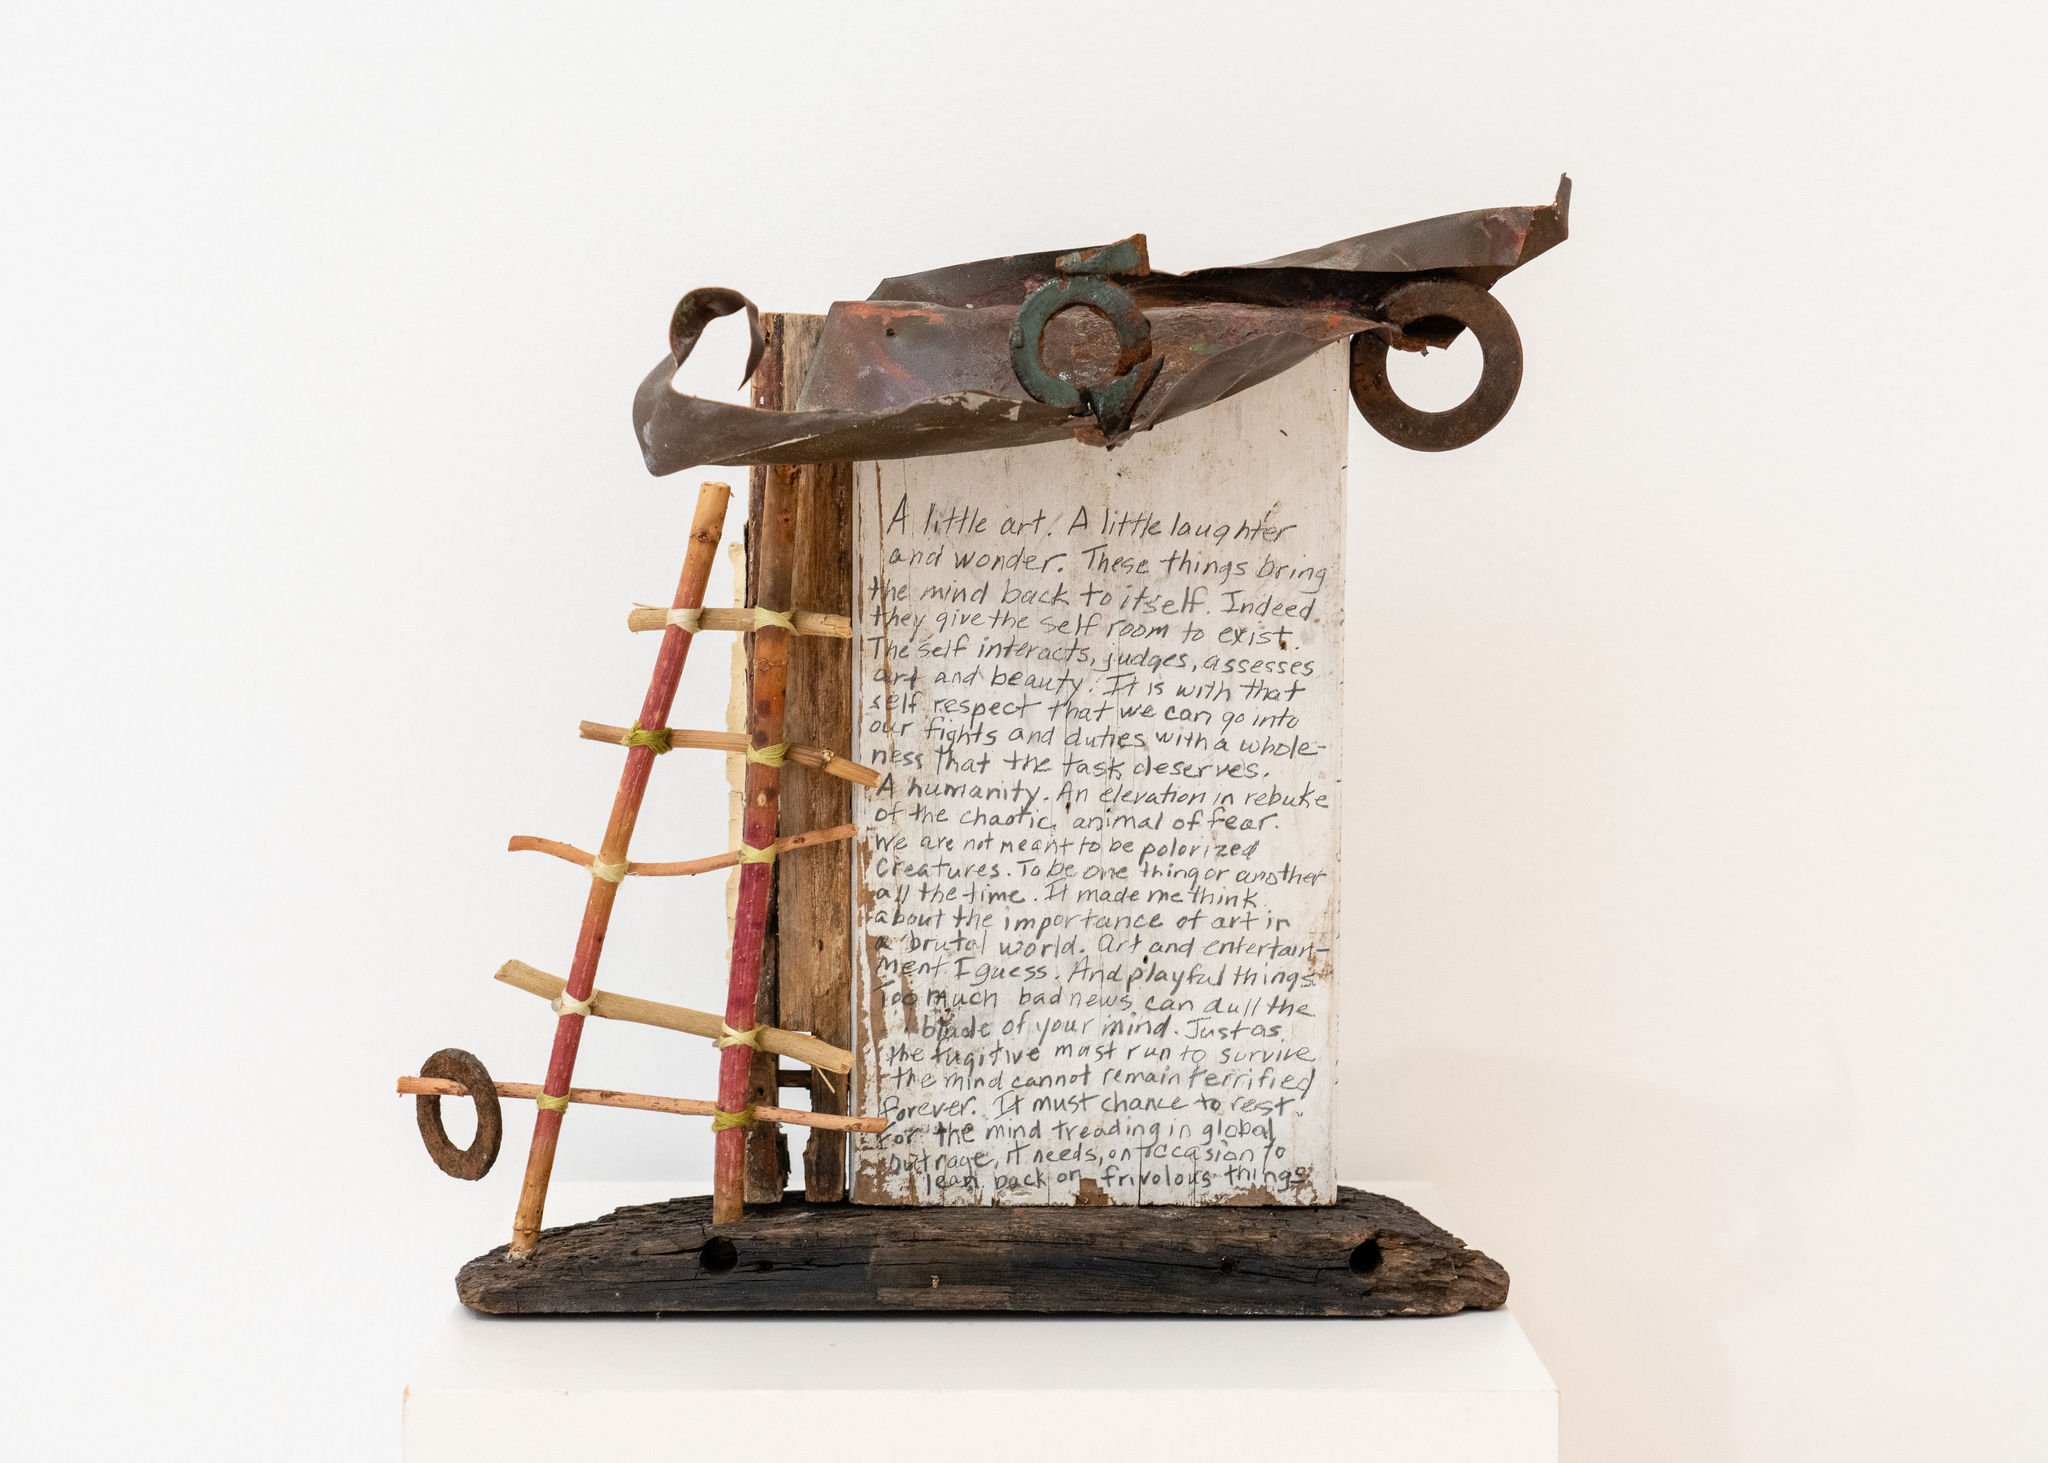 A little art. A little laughter
and wonder. These things bring
the mind back to itself. Indeed
they give the self room to exist.
The self interacts, judges, assesses
art and beauty. It is with that
self respect that we can go into
our fights and duties with a whole-
ness that the task deserves.
A humanity. An elevation in rebuke
of the chaotic animal of fear.
We are not meant to be polorized
creatures. To be one thing or another
all the time. It made me think
about the importance of art in
a brutal world. Art and entertain-
ment I guess. And playful things.
Too much bad news can dull the
blade of your mind. Just as
the fugitive must run to survive
the mind cannot remain terrified
forever. It must chance to rest.
For the mind treading in global
outrage, it needs, on occasion to
lean back on frivolous things